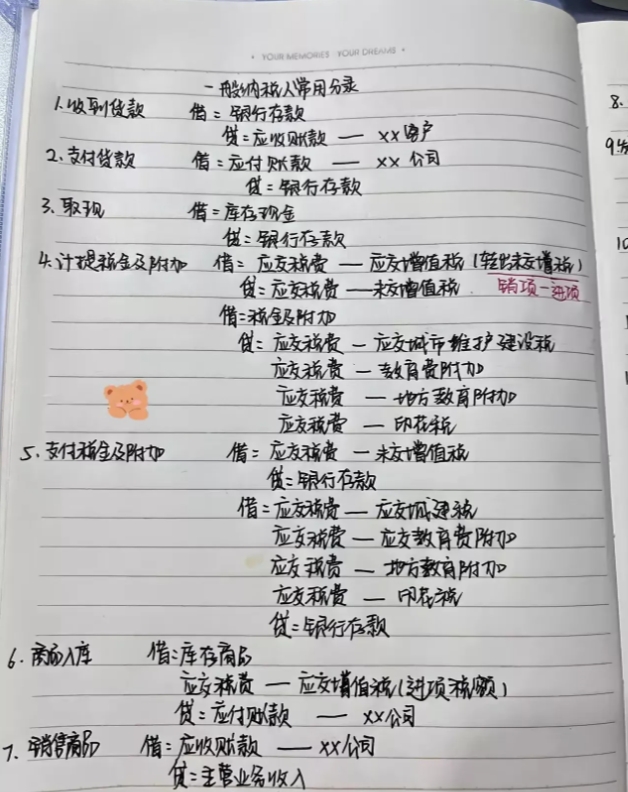 • YOUR MEMORIES YOUR DREAMS •
一般纳税人常用分录
1.收到货款 借:银行存款
贷:应收账款 — XX客户
2.支付货款 借:应付账款 — XX公司
贷:银行存款
3.取现 借:库存现金
贷:银行存款
4.计提税金及附加 借:应交税费 — 应交增值税(转出未交增税)
贷:应交税费 — 未交增值税. 销项-进项
借:税金及附加
贷:应交税费 — 应交城市维护建设税
应交税费 — 教育费附加
应交税费 — 地方教育附加
应交税费 — 印花税
5.支付税金及附加 借:应交税费 — 未交增值税
贷:银行存款
借:应交税费 — 应交城建税
应交税费 — 应交教育费附加
应交税费 — 地方教育附加
应交税费 — 印花税
贷:银行存款
6.商品入库 借:库存商品
应交税费 — 应交增值税(进项税额)
贷:应付账款 — XX公司
7.销售商品 借:应收账款 — XX公司
贷:主营业务收入
8.
9.
10